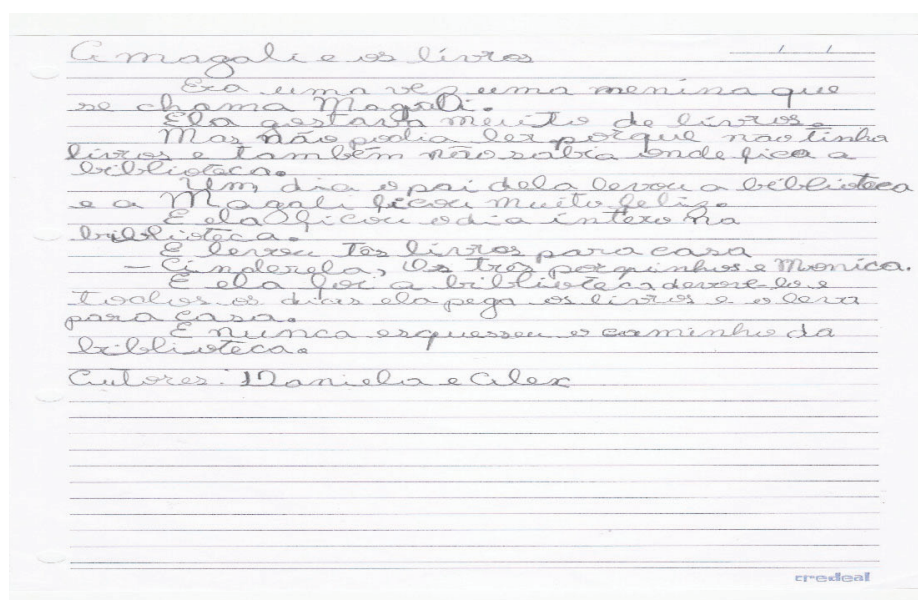 A magali e os livros
Era uma vez uma menina que
se chama Magali.
Ela gostava muito de livros.
Mas não podia ler porque não tinha
livros e também não sabia onde fica a
biblioteca.
Um dia o pai dela levou a biblioteca
e a Magali ficou muito feliz.
E ela ficou o dia intero na
biblioteca.
E levou Tos livros para casa
– Cinderela, Os tros porquinhos e Monica.
E ela foi a biblioteca devove-lo e
todos os dias ela pega os livros e o leva
para casa.
E nunca esquesseu o caminho da
biblioteca.
Autores: Daniela e Alex
credeal